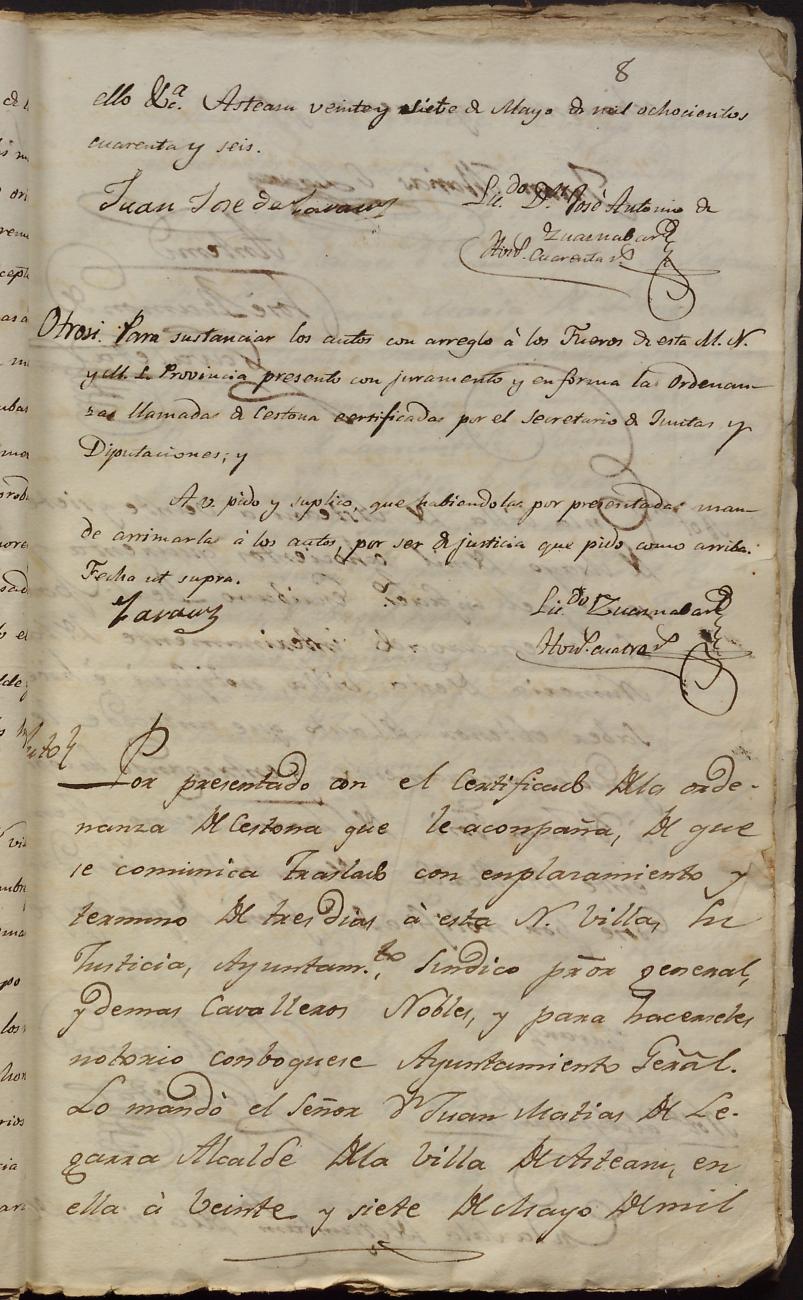 8
ello &c.ª Asteasu veinte y siete de Mayo de mil ochocientos
cuarenta y seis.
Juan José de Zarauz
Lic.do D.n José Antonio de
Zuaznabar
Hon.s cuarenta r.s
Otrosi. Para sustanciar los autos con arreglo à los Fueros de esta M. N.
y M. L. Provincia presento con juramento y en forma las Ordenan-
zas llamadas de Cestona certificadas por el Secretario de Juntas y
Diputaciones; y
A V. pido y suplico, que habiendolas por presentadas man-
de arrimarlas à los autos, por ser de justicia que pido como arriba.
Fecha ut supra.
Zarauz
Lic.do Zuaznabar
Hon.s cuatro r.s
Auto
Por presentado con el Certificado Dela orde-
nanza De Cestona que le aconpaña, De que
se comunica traslado con enplazamiento y
termino De tres dias à esta N. Villa, su
Justicia, Ayuntam.to, Sindico prõr general,
y demas Cavalleros Nobles, y para hacerseles
notorio conboquese Ayuntamiento Genãl.
Lo mandò el Señor D.n Juan Matias De Le-
garra Alcalde Dela Villa De Asteasu, en
ella à Veinte y siete De Mayo De mil